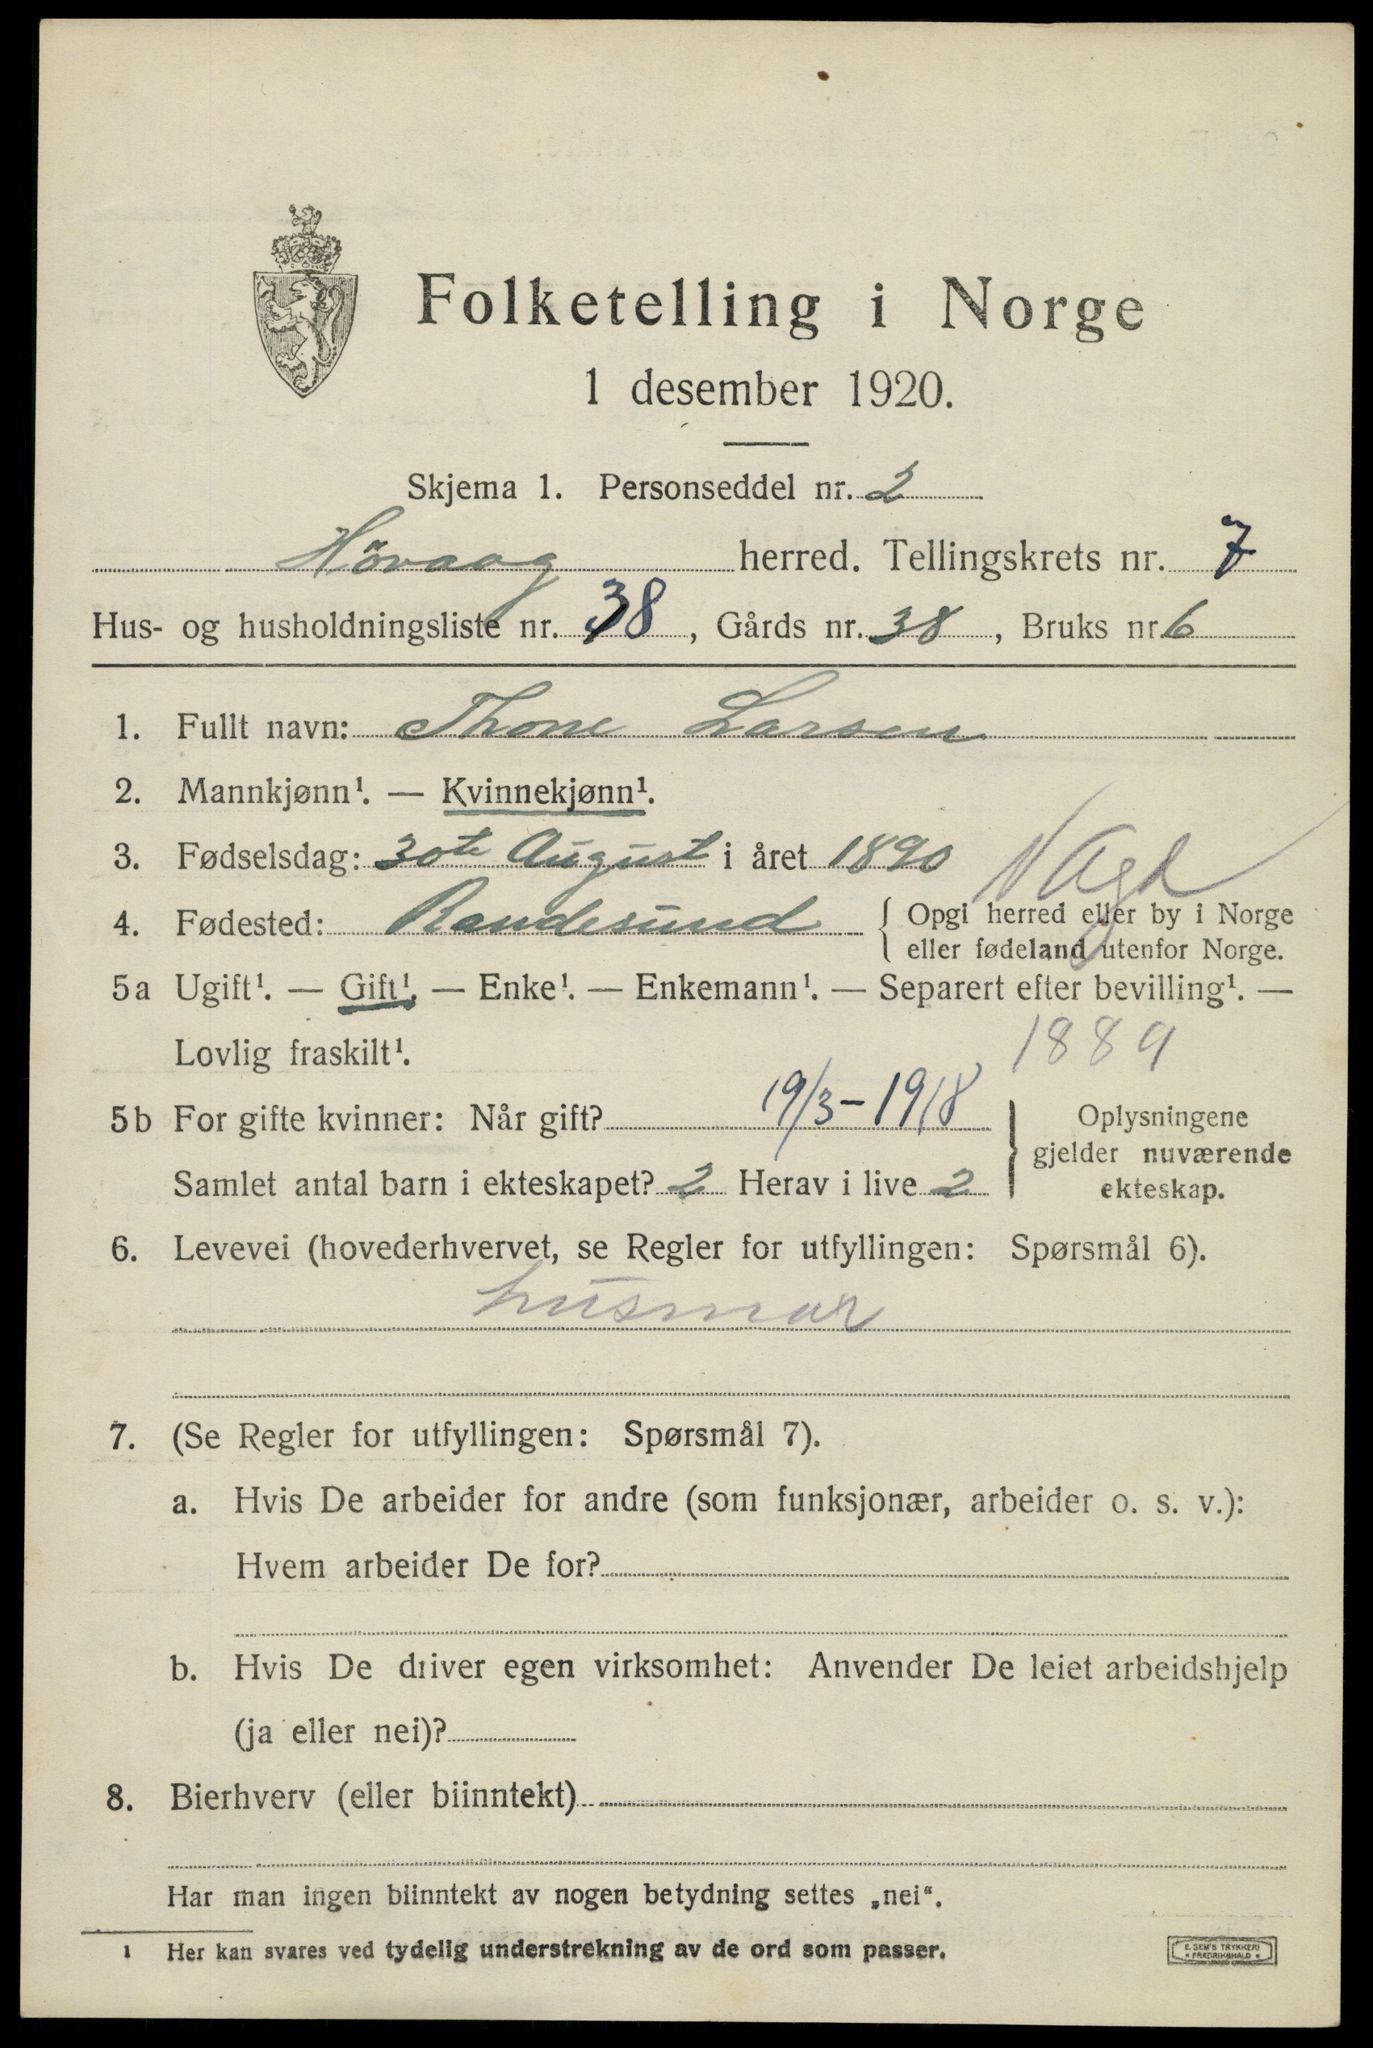 Folketelling i Norge
1 desember 1920.
Skjema 1. Personseddel nr. 2
Hövaag herred. Tellingskrets nr. 7
Hus- og husholdningsliste nr. 38, Gårds nr. 38, Bruks nr. 6
1. Fullt navn: Thone Larsen
2. Mannkjønn¹. — Kvinnekjønn¹.
3. Fødselsdag: 30te August i året 1890
V Agd
4. Fødested: Randesund { Opgi herred eller by i Norge
eller fødeland utenfor Norge.
5a Ugift¹. — Gift¹. — Enke¹. — Enkemann¹. — Separert efter bevilling¹. —
Lovlig fraskilt¹. 1889
5b For gifte kvinner: Når gift? 19/3-1918 } Oplysningene
gjelder nuværende
Samlet antal barn i ekteskapet? 2 Herav i live 2 ekteskap.
6. Levevei (hovederhvervet, se Regler for utfyllingen: Spørsmål 6).
husmor
7. (Se Regler for utfyllingen: Spørsmål 7).
a. Hvis De arbeider for andre (som funksjonær, arbeider o. s. v.):
Hvem arbeider De for?
b. Hvis De driver egen virksomhet: Anvender De leiet arbeidshjelp
(ja eller nei)?
8. Bierhverv (eller biinntekt)
Har man ingen biinntekt av nogen betydning settes „nei“.
¹ Her kan svares ved tydelig understrekning av de ord som passer.
E. SEM'S TRYKKERI
* FREDRIKSHALD *